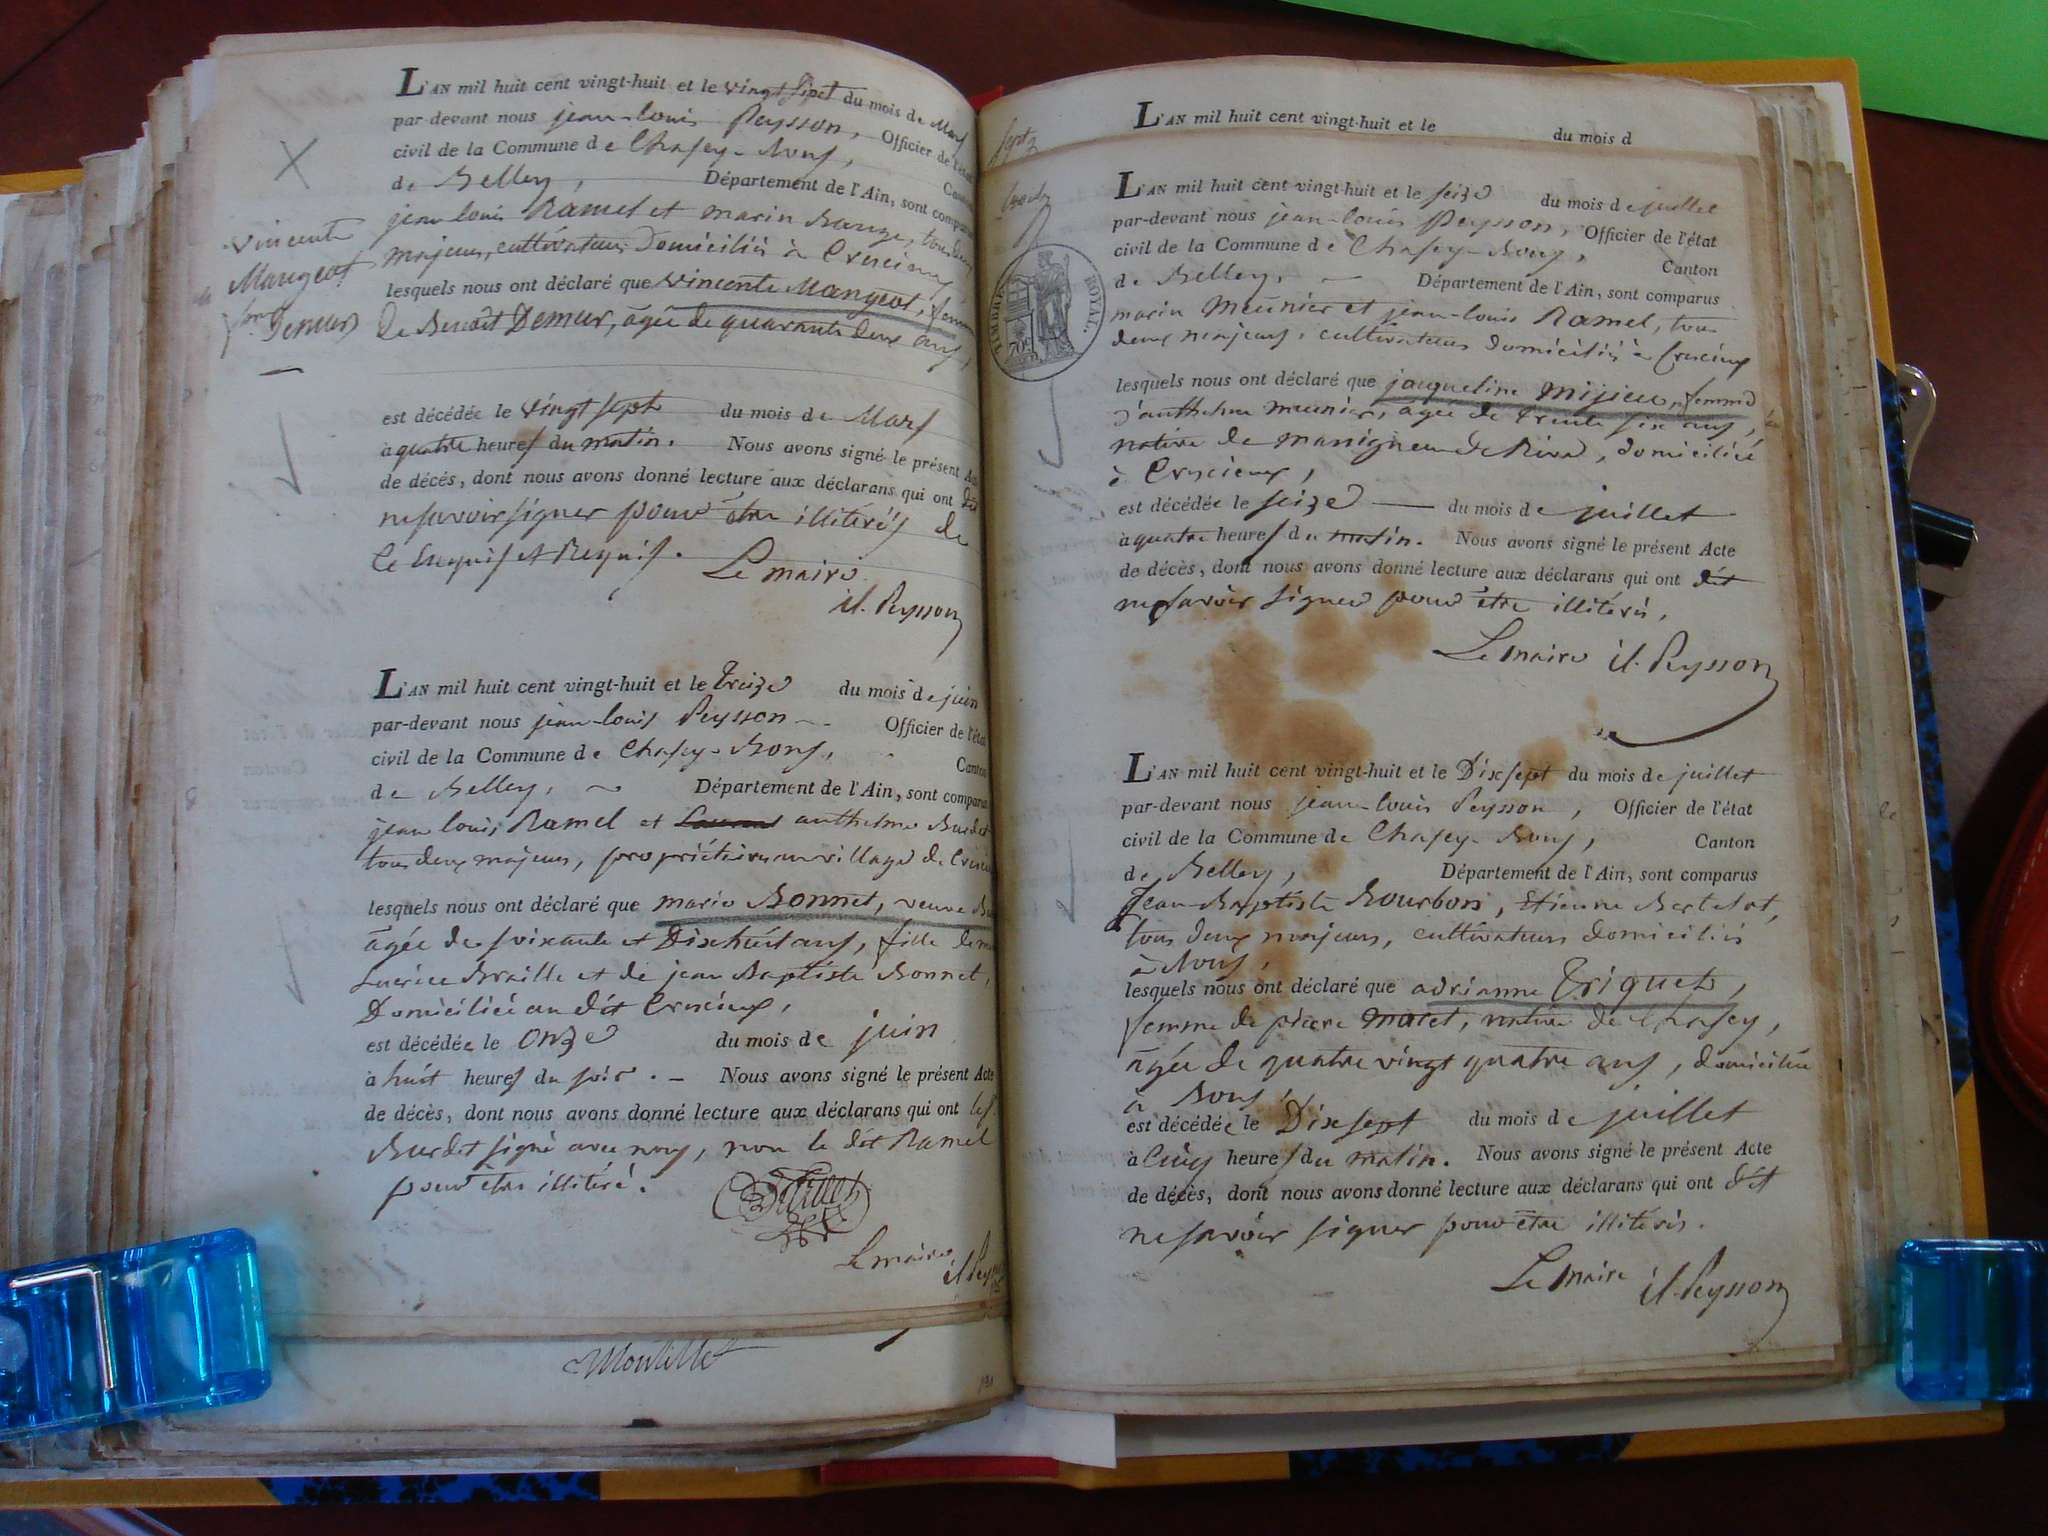 L'AN mil huit cent vingt-huit et le vingt sept du mois de Mars
par-devant nous jean-louis Peysson, Officier de l'état
civil de la Commune de Chasey-Bons, Canton
de Belley, Département de l'Ain, sont comparus
jean louis Ramel et marin tous deux
majeurs, cultivateurs Domiciliés à Crescieux
lesquels nous ont déclaré que vincente Mangeot, femme
de Benoît Demur, âgée de quarante deux ans,
est décédée le vingt sept du mois de Mars
à quatre heures du matin. Nous avons signé le présent Acte
de décés, dont nous avons donné lecture aux déclarans qui ont dit
ne savoir signer pour être illitérés de
ce Enquis et Requis. Le maire
jl. Peysson
vincente
Mangeot
fme
Demur
L'AN mil huit cent vingt-huit et le treize du mois de juin
par-devant nous jean-louis Peysson Officier de l'état
civil de la Commune de Chasey-Bons, Canton
de Belley, Département de l'Ain, sont comparus
jean louis Ramel et anthelme Burdet
tous deux majeurs, propriétaires au village de
lesquels nous ont déclaré que marie Bonnet, veuve
âgée de soixante et Dixhuit ans, fille de
Braille et de jean Baptiste Bonnet,
Domiciliée au dit Crescieux,
est décédée le onze du mois de juin
à huit heures du soir. Nous avons signé le présent Acte
de décès, dont nous avons donné lecture aux déclarans qui ont
Burdet signé avec nous, non le dit Ramel
pour être illitéré.
Le maire
jl. Peysson
L'AN mil huit cent vingt-huit et le du mois d
TIMBRE ROYAL
70
L'AN mil huit cent vingt-huit et le seize du mois de juillet
par-devant nous jean-louis Peysson, Officier de l'état
civil de la Commune de Chasey-Bons, Canton
de Belley, Département de l'Ain, sont comparus
marin Meunier et jean-louis Ramel, tous
deux majeurs, cultivateurs domiciliés à Crescieux
lesquels nous ont déclaré que jacqueline femme
d'anthelme meunier, âgée de trente six ans,
native de domiciliée
à Crescieux,
est décédée le seize du mois de juillet
à quatre heures du matin. Nous avons signé le présent Acte
de décès, dont nous avons donné lecture aux déclarans qui ont dit
ne savoir signer pour être illitérés,
Le maire jl. Peysson
L'AN mil huit cent vingt-huit et le Dixsept du mois de juillet
par-devant nous jean-louis Peysson, Officier de l'état
civil de la Commune de Chasey-Bons, Canton
de Belley, Département de l'Ain, sont comparus
Jean-Baptiste Bourbon, Etienne Bertelot,
tous deux majeurs, cultivateurs domiciliés
à Bons,
lesquels nous ont déclaré que adrianne Triquet,
femme de pierre native de Chasey,
âgée de quatre vingt quatre ans, domiciliée
à Bons,
est décédée le Dixsept du mois de juillet
à Cinq heures du matin. Nous avons signé le présent Acte
de décès, dont nous avons donné lecture aux déclarans qui ont dit
ne savoir signer pour être illitérés.
Le maire jl. Peysson